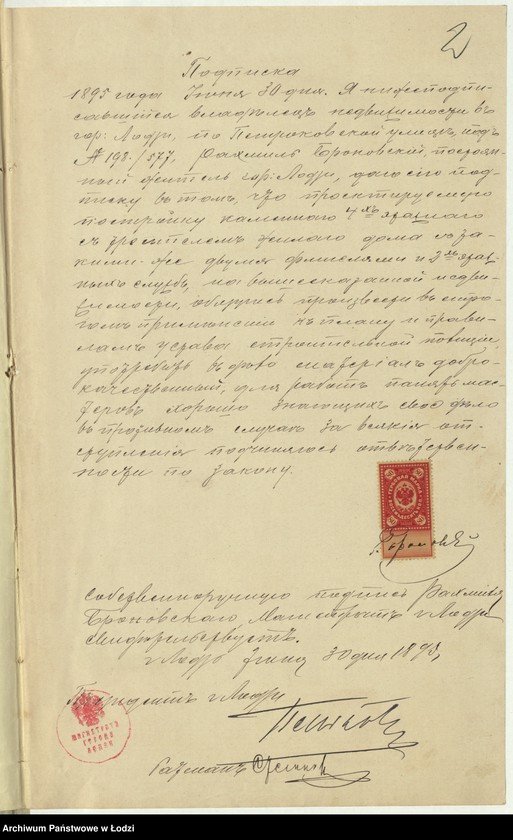 2
Подписка
1895 года Іюня 30 дня. Я нижеподпи-
савшійся владѣлецъ недвижимости въ
гор. Лодзи, по Петроковской улицѣ, подъ
№ 198/577, Рахмиль Броновскій, постоян-
ный житель гор: Лодзи, даю сію под-
писку въ томъ, что проектируемую
постройку каменнаго 4хъ этажнаго
съ жилаго дома съ та-
кими-же двумя флигелями и 2хъ этаж.
ныхъ службъ, на вышесказанной недви-
жимости, обязуюсь произвести въ стро-
гомъ примѣненіи къ плану и прави-
ламъ устава строительной полиціи,
употребить въ дѣло матеріалъ добро-
качественный, для работъ нанять мас-
теровъ хорошо знающихъ свое дѣло
въ противномъ случаѣ за всякія от-
ступленія подчиняюсь отвѣтствен-
ности по закону.
Собственноручную подпись Рахмиля
Броновскаго, Магистратъ г. Лодзи
свидѣтельствуетъ.
г. Лодзь Іюня 30 дня 1895,
Президентъ г. Лодзи
МАГИСТРАТЪ
ГОРОДА
ЛОДЗИ
Archiwum Państwowe w Łodzi